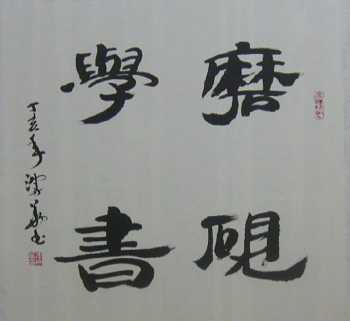 磨硯
學書
丁亥年
書